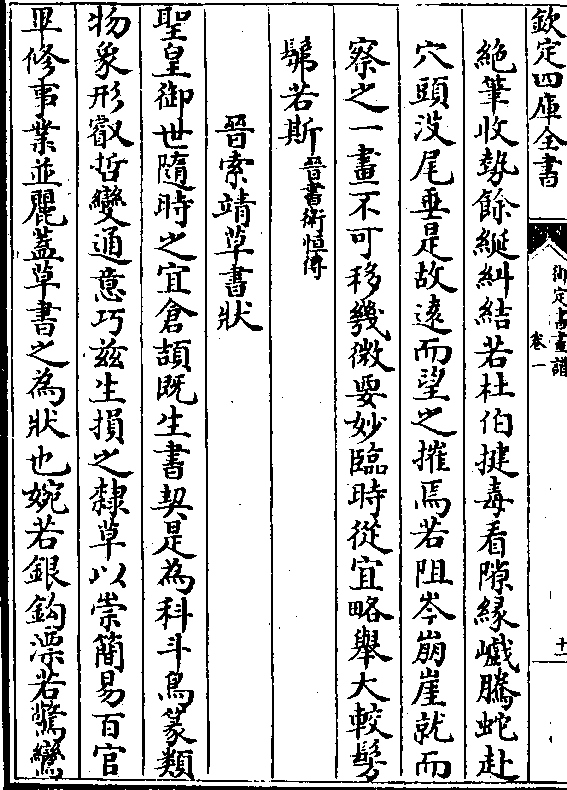 欽定四庫全書
御定書畫譜
卷一
十一
絶筆收勢餘綖糾結若杜伯揵毒看隙縁巇騰蛇赴
穴頭没尾垂是故遠而望之摧焉若阻岑崩崖就而
察之一畫不可移幾微要妙臨時從宜略舉大較髣
髴若斯晉書衛恒傳
晉索靖草書狀
聖皇御世隨時之宜倉頡既生書契是為科斗鳥篆類
物象形叡哲變通意巧兹生損之隸草以崇簡易百官
畢修事業並麗蓋草書之為狀也婉若銀鈎漂若驚鸞